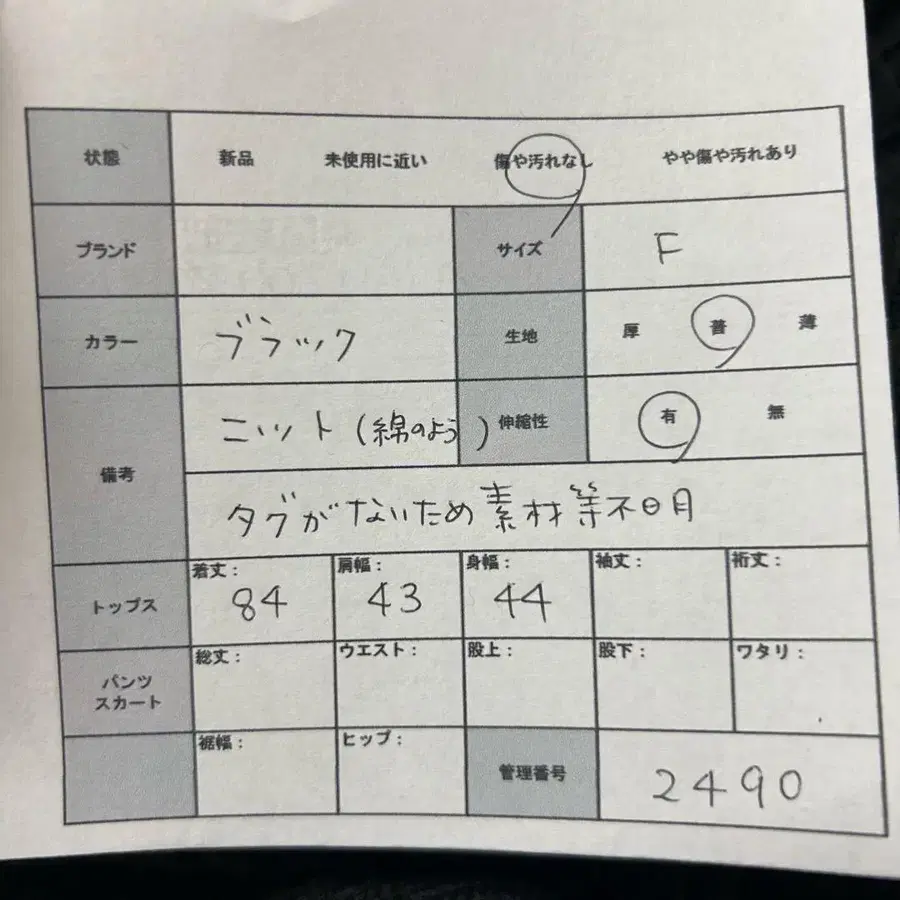 状態 新品 未使用に近い 傷や汚れなし やや傷や汚れあり
ブランド サイズ F
カラー ブラック 生地 厚 普 薄
備考 ニット(綿のよう) 伸縮性 有 無
タグがないため素材等不明
トップス 着丈: 84 肩幅: 43 身幅: 44 袖丈: 裄丈:
パンツ スカート 総丈: ウエスト: 股上: 股下: ワタリ:
裾幅: ヒップ: 管理番号 2490